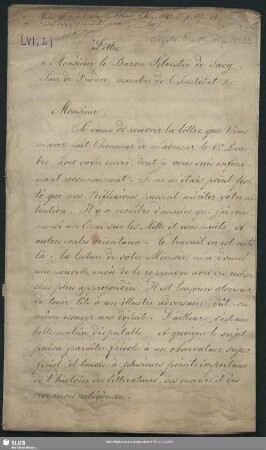 LVI, 2)
Lettre
à Monsieur le Baron Silvestre de Sacy,
Pair de France, membre de l'Institut &c
Monsieur,
Je viens de recevoir la lettre que Vous
m'avez fait l'honneur de m'adresser le 12
bre, avec votre envoi dont je vous suis infini-
ment reconnaissant. Je ne m'étais point flat-
té que mes Réflexions pussent mériter votre at-
tention. Il y a nombre d'années que j'ai com-
mencé un Essai sur les Mille et une nuits, et
autres contes orientaux: le travail en est resté
là. La lecture de votre Mémoire m'a donné
une nouvelle envie de le reprendre avec des recher-
ches plus approfondies. Il est toujours glorieux
de tenir tête à un illustre adversaire, dût-on
même essuyer une défaite. D'ailleurs, c'est une
belle matière disputable. Et quoique le sujet
puisse paraître frivole à un observateur super-
ficiel, il touche à plusieurs points importans
de l'histoire des littératures, des mœurs et des
croyances religieuses.
SLUB